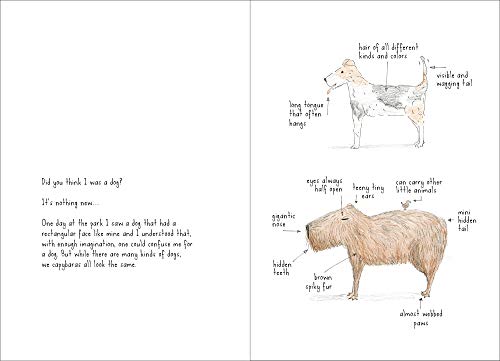 Did you think I was a dog?
It's nothing new...
One day at the park I saw a dog that had a
rectangular face like mine and I understood that,
with enough imagination, one could confuse me for
a dog. But while there are many kinds of dogs,
we capybaras all look the same.
hair of all different
kinds and colors
visible and
wagging tail
long tongue
that often
hangs
eyes always
half open
teeny tiny
ears
can carry other
little animals
gigantic
nose
mini
hidden
tail
hidden
teeth
brown
spiky fur
almost webbed
paws